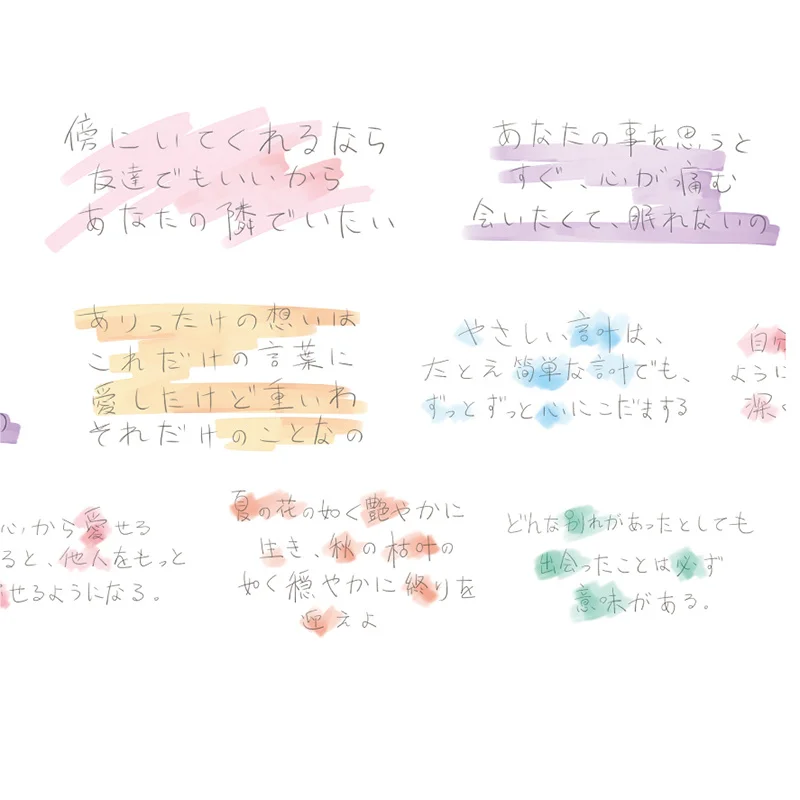 傍にいてくれるなら
友達でもいいから
あなたの隣でいたい
あなたの事を思うと
すぐ、心が痛む
会いたくて、眠れないの
ありったけの想いは
これだけの言葉に
愛したけど重いわ
それだけのことなの
やさしい言叶は、
たとえ簡単な言叶でも、
ずっとずっと心にこだまする
自分
ように
深く
心から愛せる
ると、他人をもっと
せるようになる。
夏の花の如く艶やかに
生き、秋の枯叶の
如く穏やかに終りを
迎えよ
どんな别れがあったとしても
出会ったことは必ず
意味がある。